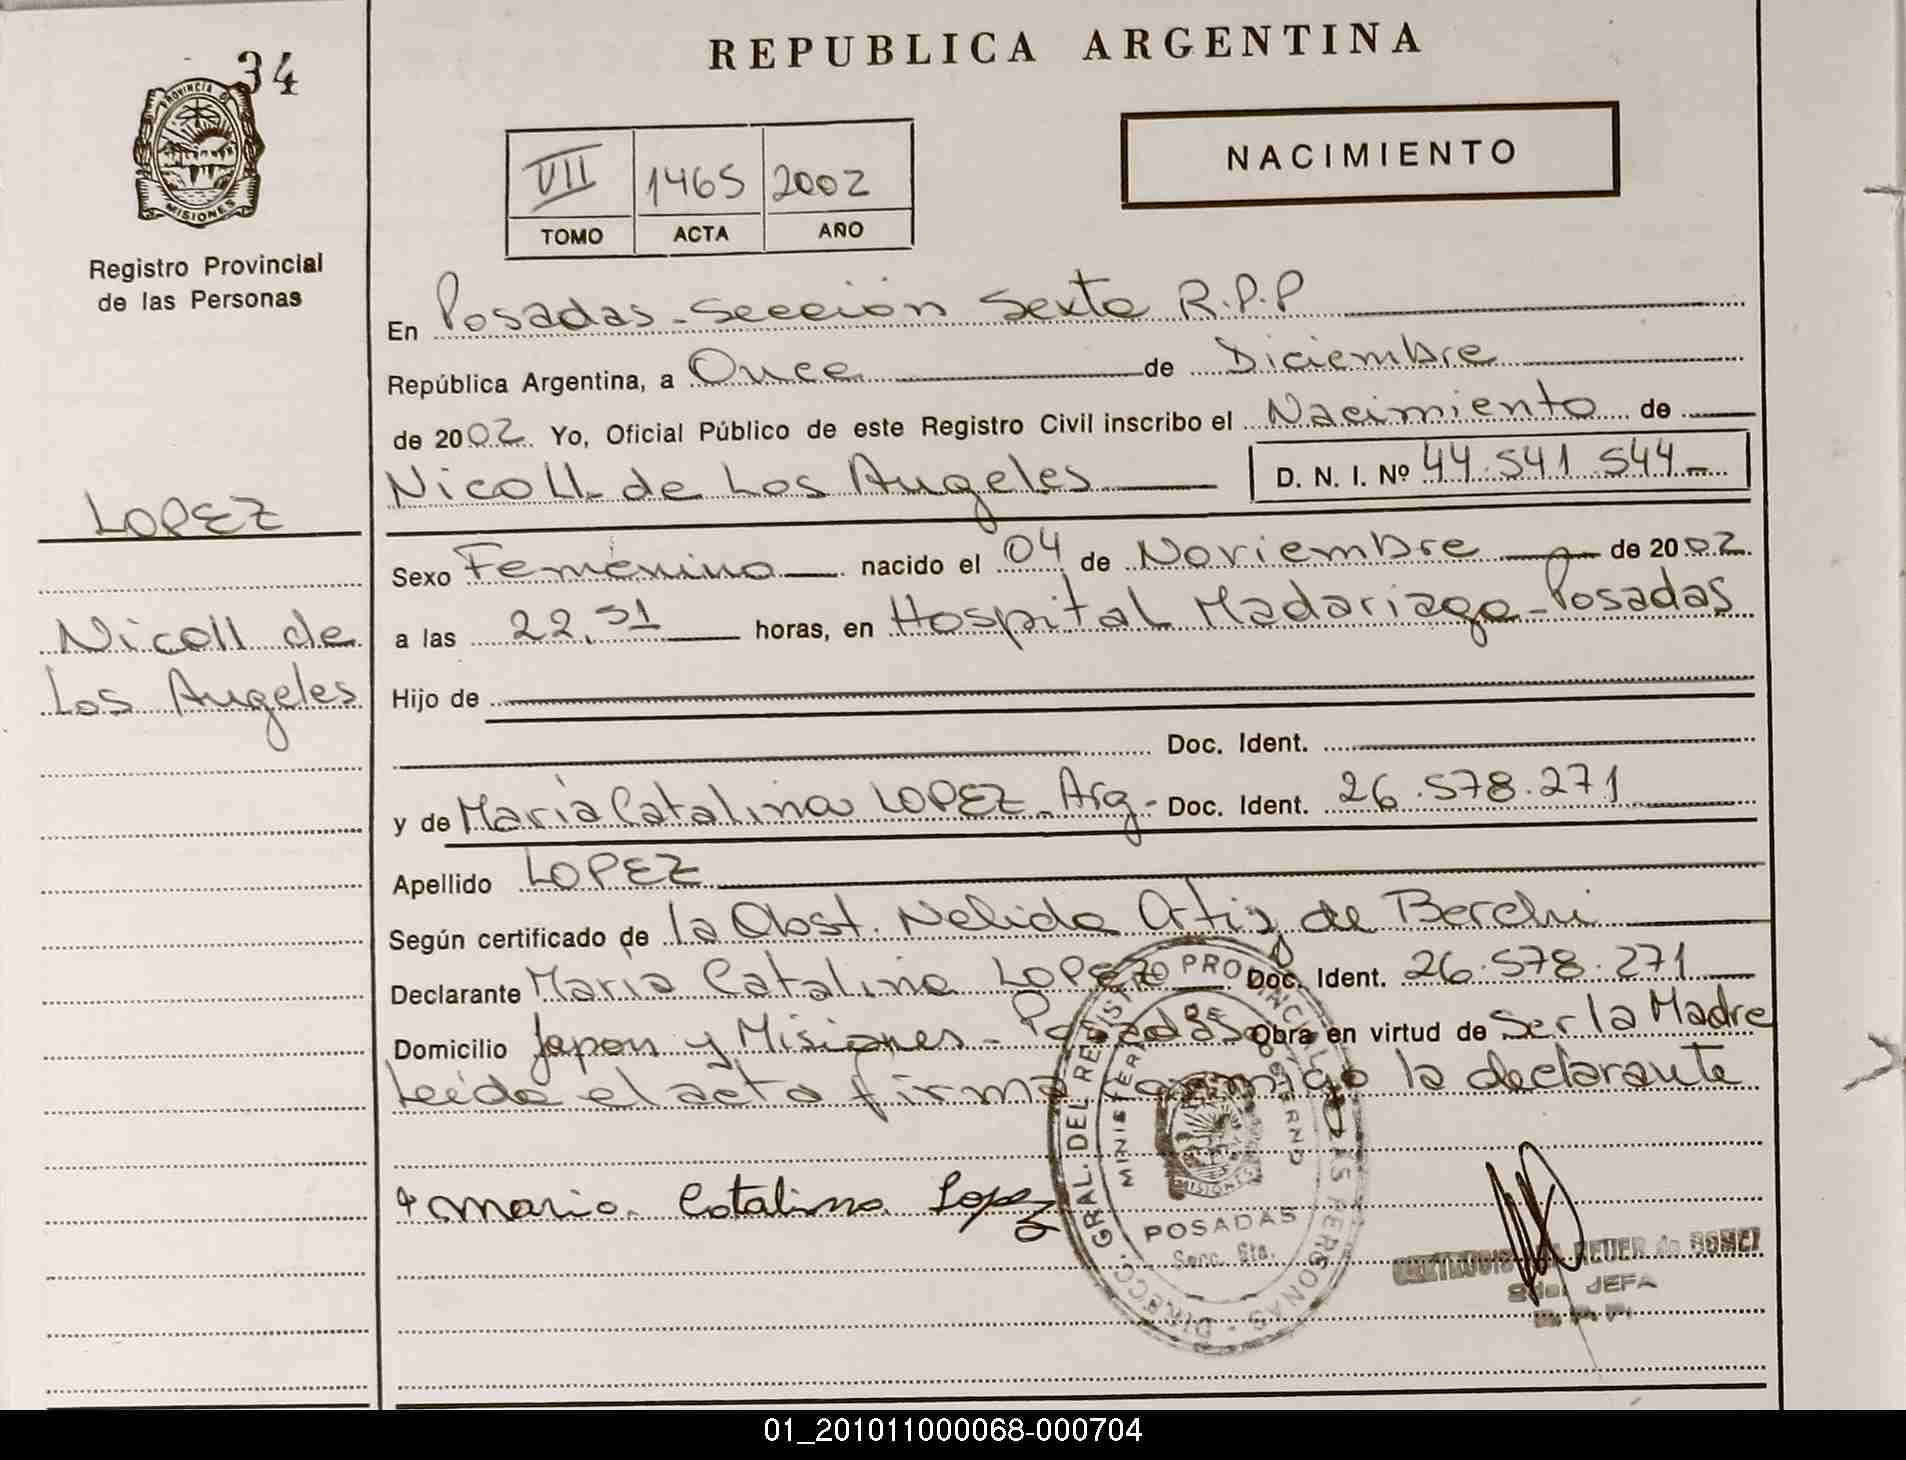 34
PROVINCIA DE
MISIONES
Registro Provincial
de las Personas
REPUBLICA ARGENTINA
VII 1465 2002
TOMO ACTA AÑO
NACIMIENTO
En Posadas - Sección Sexta R.P.P
República Argentina, a Once de Diciembre
de 2002 Yo, Oficial Público de este Registro Civil inscribo el Nacimiento de
Nicoll de Los Angeles D. N. I. Nº 44.541.544
LOPEZ
Nicoll de
Los Angeles
Sexo Femenino nacido el 04 de Noviembre de 2002
a las 22,51 horas, en Hospital Madariaga - Posadas
Hijo de
Doc. Ident.
y de María Catalina LOPEZ - Arg - Doc. Ident. 26.578.271
Apellido LOPEZ
Según certificado de la Obst. Nelida Ortiz de Berchi
Declarante María Catalina LOPEZ Doc. Ident. 26.578.271
Domicilio Japon y Misiones - Posadas Obra en virtud de Ser la Madre
Leída el acta firma conmigo la declarante
Maria Catalina Lopez
DIRECC. GRAL. DEL REGISTRO PROVINCIAL DE LAS PERSONAS
MINISTERIO DE GOBIERNO
MISIONES
POSADAS
Secc. 6ta.
REUER de GOMEZ
JEFA
01_201011000068-000704